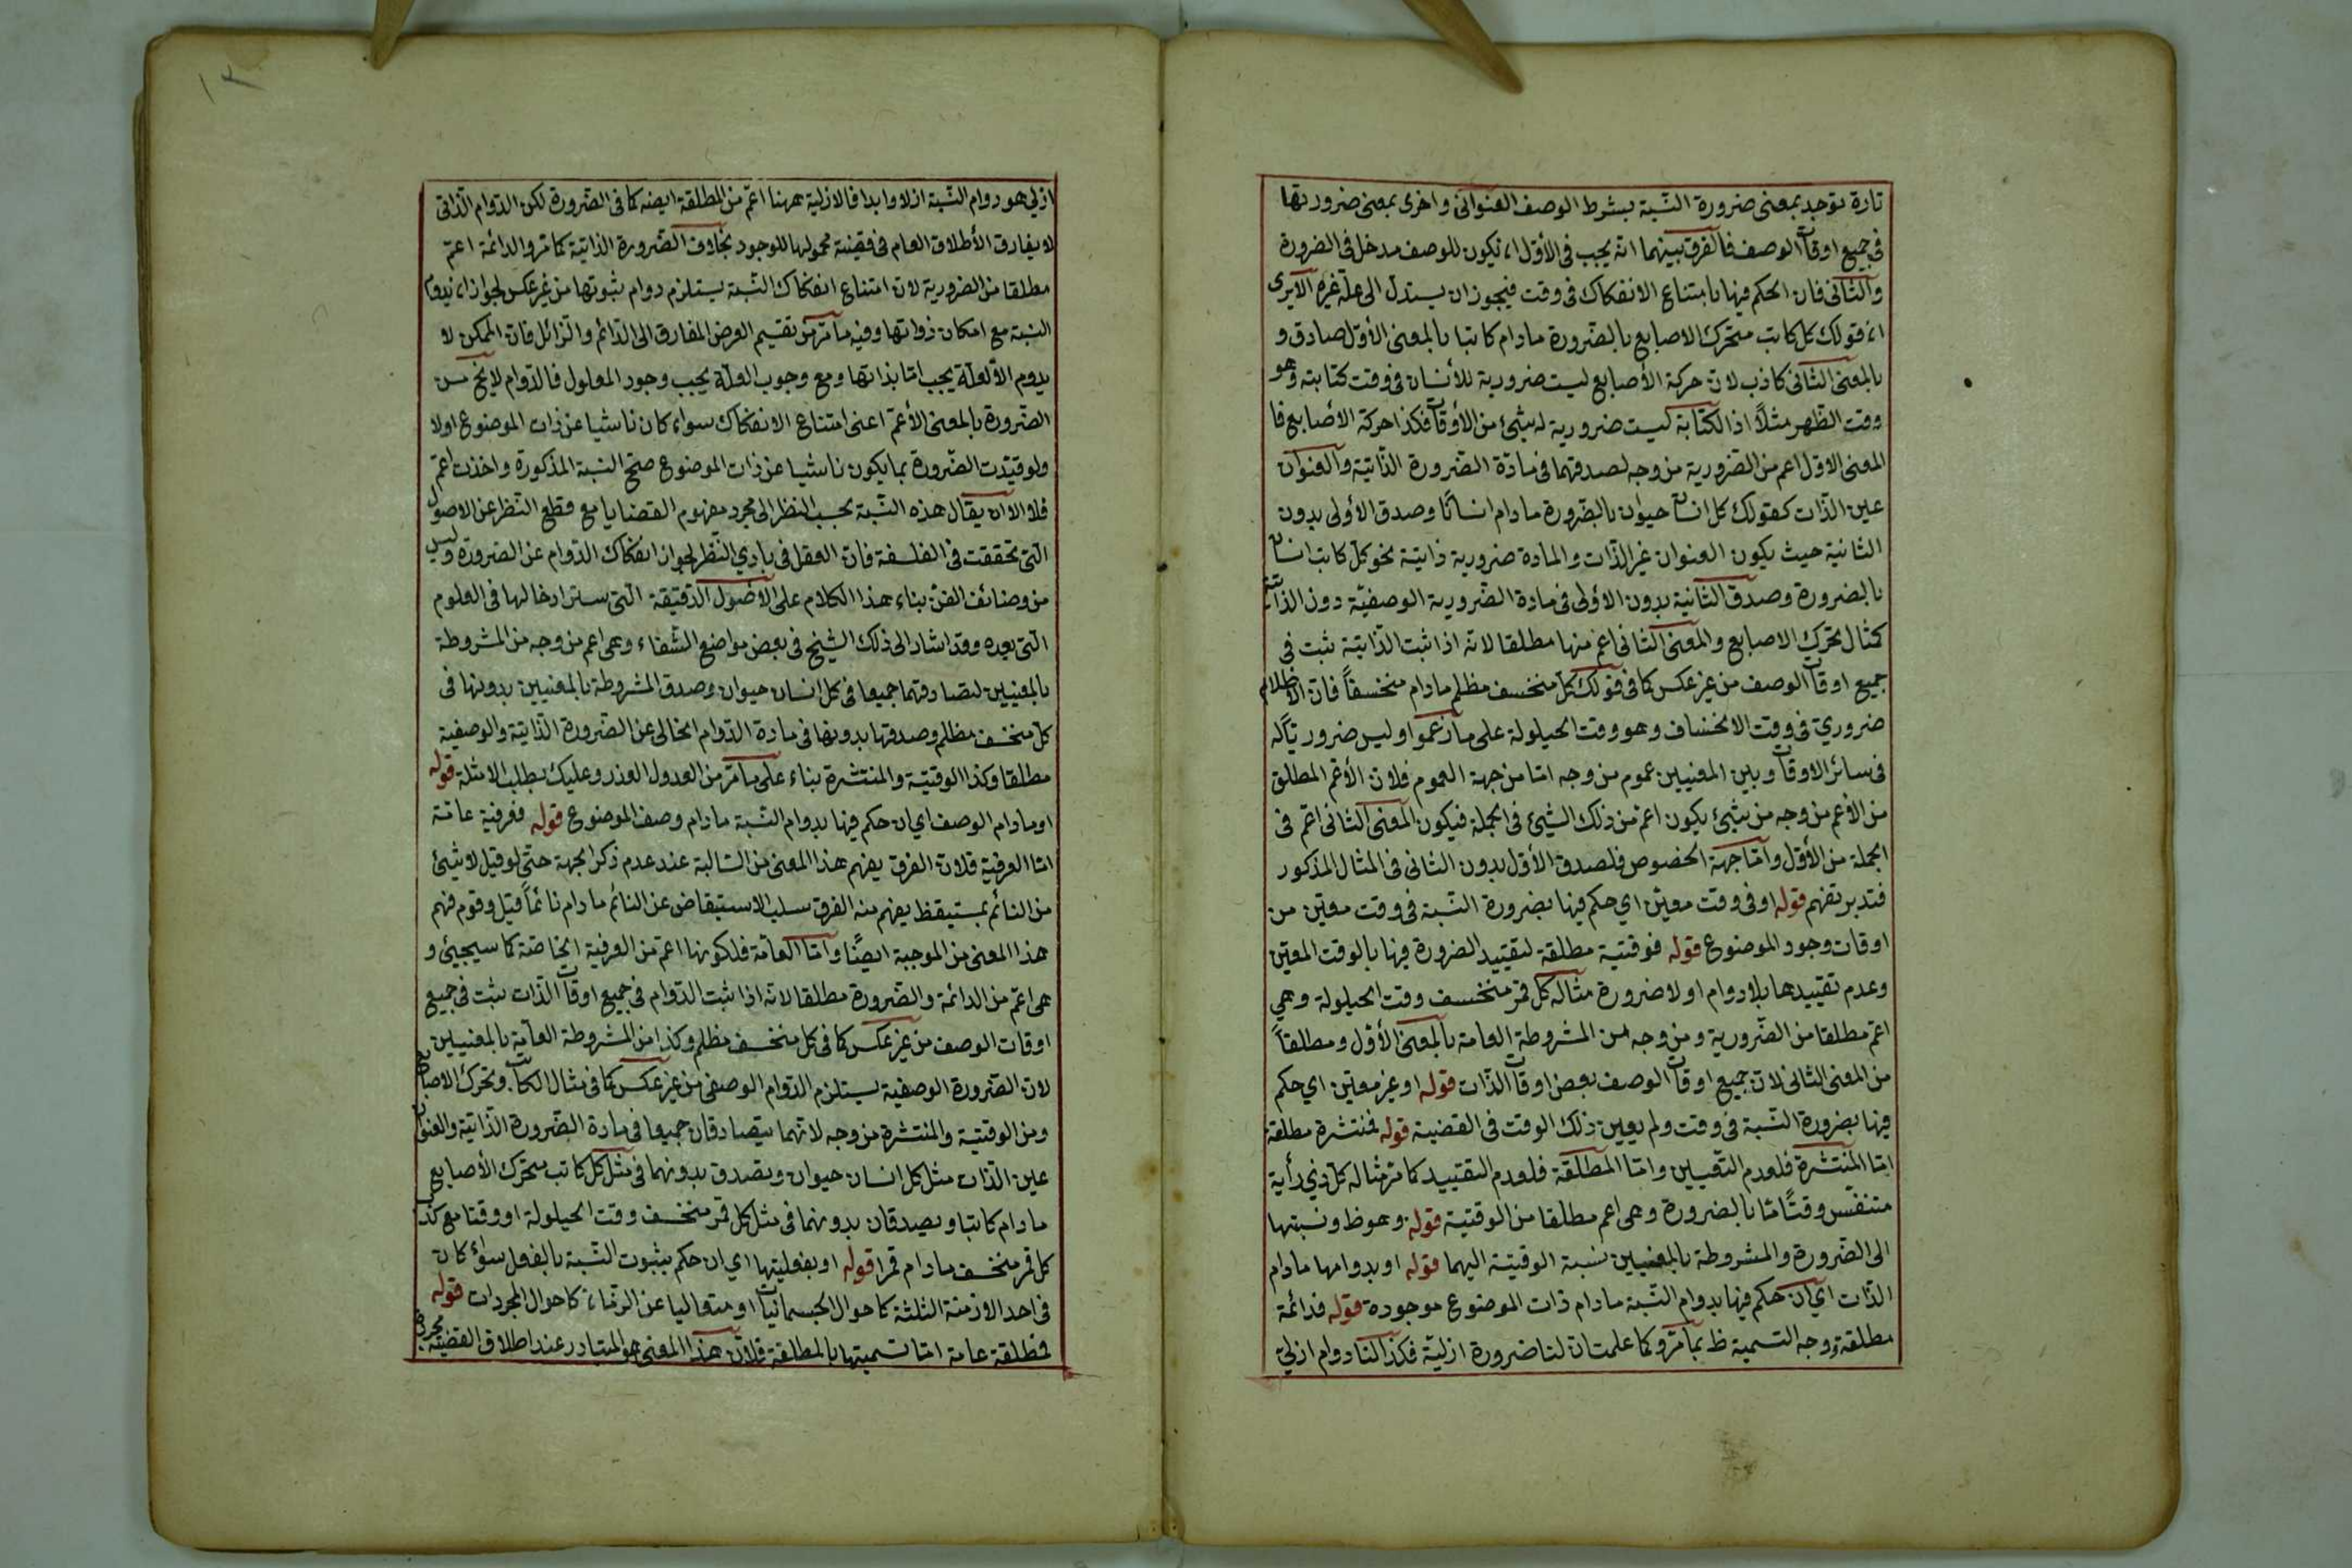 تارة توجد بمعنى ضرورة النسبة بشرط الوصف العنوانى واخرى بمعنى ضرورتها
فى جميع اوقات الوصف فالفرق بينهما انه يجب فى الأول ان يكون للوصف مدخل فى الضرورة
والثانى فان الحكم فيها بامتناع الانفكاك فى وقت فيجوز ان يستدل الى علة غيره الا يرى
ان قولك كل كاتب متحرك الاصابع بالضرورة مادام كاتبا بالمعنى الأول صادق و
بالمعنى الثانى كاذب لان حركة الأصابع ليست ضرورية للأنسان فى وقت كتابته وهو
وقت الظهر مثلاً اذ الكتابة ليست ضرورية له بشئ من الأوقات فكذا حركة الأصابع فا
المعنى الاول اعم من الضرورية من وجه لصدقهما فى مادة الضرورة الذاتية والعنوان
عين الذات كقولك كل انسان حيوان بالضرورة مادام انسانًا وصدق الأولى بدون
الثانية حيث يكون العنوان غير الذات والمادة ضرورية ذاتية نحو كل كاتب انسان
بالضرورة وصدق الثانية بدون الاولى فى مادة الضرورية الوصفية دون الذاتية
كمثال تحرك الاصابع والمعنى الثانى اعم منها مطلقا لانه اذا ثبت الذاتية ثبت فى
جميع اوقات الوصف من غير عكس كما فى قولك كل منخسف مظلم مادام منخسفاً فان الاظلام
ضروري فى وقت الانخساف وهو وقت الحيلولة على ما زعموا وليس ضروريًا له
فى سائر الاوقات وبين المعنيين عموم من وجه اما من جهة العموم فلان الأعم المطلق
من الأعم من وجه من شئ يكون اعم من ذلك الشئ فى الجملة فيكون المعنى الثانى اعم فى
الجملة من الأول واما جهة الخصوص فلصدق الأول بدون الثانى فى المثال المذكور
فتدبر تفهم قوله او فى وقت معين اي حكم فيها بضرورة النسبة فى وقت معين من
اوقات وجود الموضوع قوله فوقتية مطلقة لتقييد الضرورة فيها بالوقت المعين
وعدم تقييدها بلادوام او لاضرورة مثاله كل قمر منخسف وقت الحيلولة وهي
اعم مطلقا من الضرورية ومن وجه من المشروطة العامة بالمعنى الأول ومطلقاً
من المعنى الثانى لان جميع اوقات الوصف بعض اوقات الذات قوله او غير معين اي حكم
فيها بضرورة النسبة فى وقت ولم يعين ذلك الوقت فى القضية قوله فمنتشرة مطلقة
اما المنتشرة فلعدم التعيين واما المطلقة فلعدم التقييد كما مر مثاله كل ذي رأية
متنفس وقتًا ما بالضرورة وهى اعم مطلقا من الوقتية قوله وهو ظ ونسبتها
الى الضرورة والمشروطة بالمعنيين نسبة الوقتية اليهما قوله او بدوامها مادام
الذات اي ان حكم فيها بدوام النسبة مادام ذات الموضوع موجودة قوله فدائمة
مطلقة ووجه التسمية ظ بما مر وكما علمت ان لنا ضرورة ازلية فكذا لنا دوام ازلي
ازلي هو دوام النسبة ازلا وابدا فالازلية ههنا اعم من المطلقة ايضه كما فى الضرورة لكن الدوام الذاتى
لا يفارق الأطلاق العام فى قضية محمولها للوجود بخلاف الضرورة الذاتية كما مر والدائمة اعم
مطلقا من الضرورية لان امتناع انفكاك النسبة يستلزم دوام ثبوتها من غير عكس لجواز ان يدوم
النسبة مع امكان ذواتها وفيه ما مر من تقسيم العرض المفارق الى الدائم والزائل فان الممكن لا
يدوم الا لعلة يجب اما بذاتها ومع وجوب العلة يجب وجود المعلول فالدوام لا يخ من
الضرورة بالمعنى الأعم اعنى امتناع الانفكاك سواء كان ناشيا عن ذات الموضوع اولا
ولو قيدت الضرورة بما يكون ناشيا عن ذات الموضوع صح النسبة المذكورة واخذت اعم
فالاولى ان يقال هذه النسبة بحسب النظر الى مجرد مفهوم القضايا مع قطع النظر عن الاصول
التى تحققت فى الفلسفة فان العقل فى بادي النظر لجواز انفكاك الدوام عن الضرورة وليس
من وضائف الفن بناء هذا الكلام على الأصول الدقيقة التى ستر ادخالها فى العلوم
التى بعده وقد اشار الى ذلك الشيخ فى بعض مواضع الشفاء وهى اعم من وجه من المشروطة
بالمعنيين لتصادقهما جميعا فى كل انسان حيوان وصدق المشروطة بالمعنيين بدونها فى
كل منخسف مظلم وصدقها بدونها فى مادة الدوام الخالى عن الضرورة الذاتية والوصفية
مطلقا وكذا الوقتية والمنتشرة بناء على ما مر من العدول العذر وعليك بطلب الامثلة قوله
او مادام الوصف اي ان حكم فيها بدوام النسبة مادام وصف الموضوع قوله فعرفية عامة
اما العرفية فلان العرف يفهم هذا المعنى من السالبة عند عدم ذكر الجهة حتى لو قيل لا شئ
من النائم بمستيقظ يفهم منه العرف سلب الاستيقاض عن النائم مادام نائماً قيل وقوم فهم
هذا المعنى من الموجبة ايضًا واما العامة فلكونها اعم من العرفية الخاصة كما سيجيئ و
هى اعم من الدائمة والضرورة مطلقا لانه اذا ثبت الدوام فى جميع اوقات الذات ثبت فى جميع
اوقات الوصف من غير عكس كما فى كل منخسف مظلم وكذا من المشروطة العامة بالمعنيين
لان الضرورة الوصفية يستلزم الدوام الوصفى من غير عكس كما فى مثال الكاتب وتحرك الاصابع
ومن الوقتية والمنتشرة من وجه لانهما يتصادقان جميعا فى مادة الضرورة الذاتية والعنوان
عين الذات مثل كل انسان حيوان ويصدق بدونهما فى مثل كل كاتب متحرك الأصابع
مادام كاتبا ويصدقان بدونها فى مثل كل قمر منخسف وقت الحيلولة او وقتا مع كذب
كل قمر منخسف مادام قمرا قوله او بفعليتها اي ان حكم بثبوت النسبة بالفعل سواء كان
فى احد الازمنة الثلثة كاحوال الجسمانيات او متعاليا عن الزمان كاحوال المجردات قوله
فمطلقة عامة اما تسميتها بالمطلقة فلان هذا المعنى هو المتبادر عند اطلاق القضية